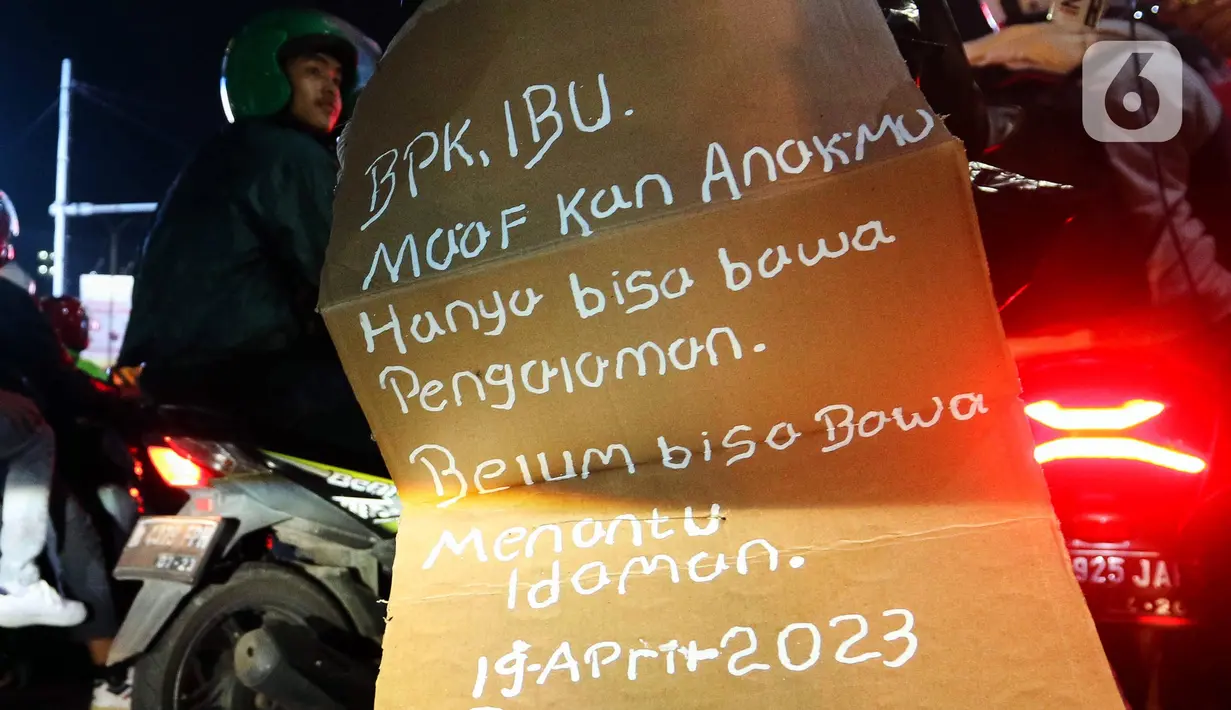 BPK, IBU.
MaaF Kan AnakMu
Hanya bisa bawa
Pengalaman.
Belum bisa Bawa
Menantu
Idaman.
19-April-2023
6
BeAT
07-23
925 JA